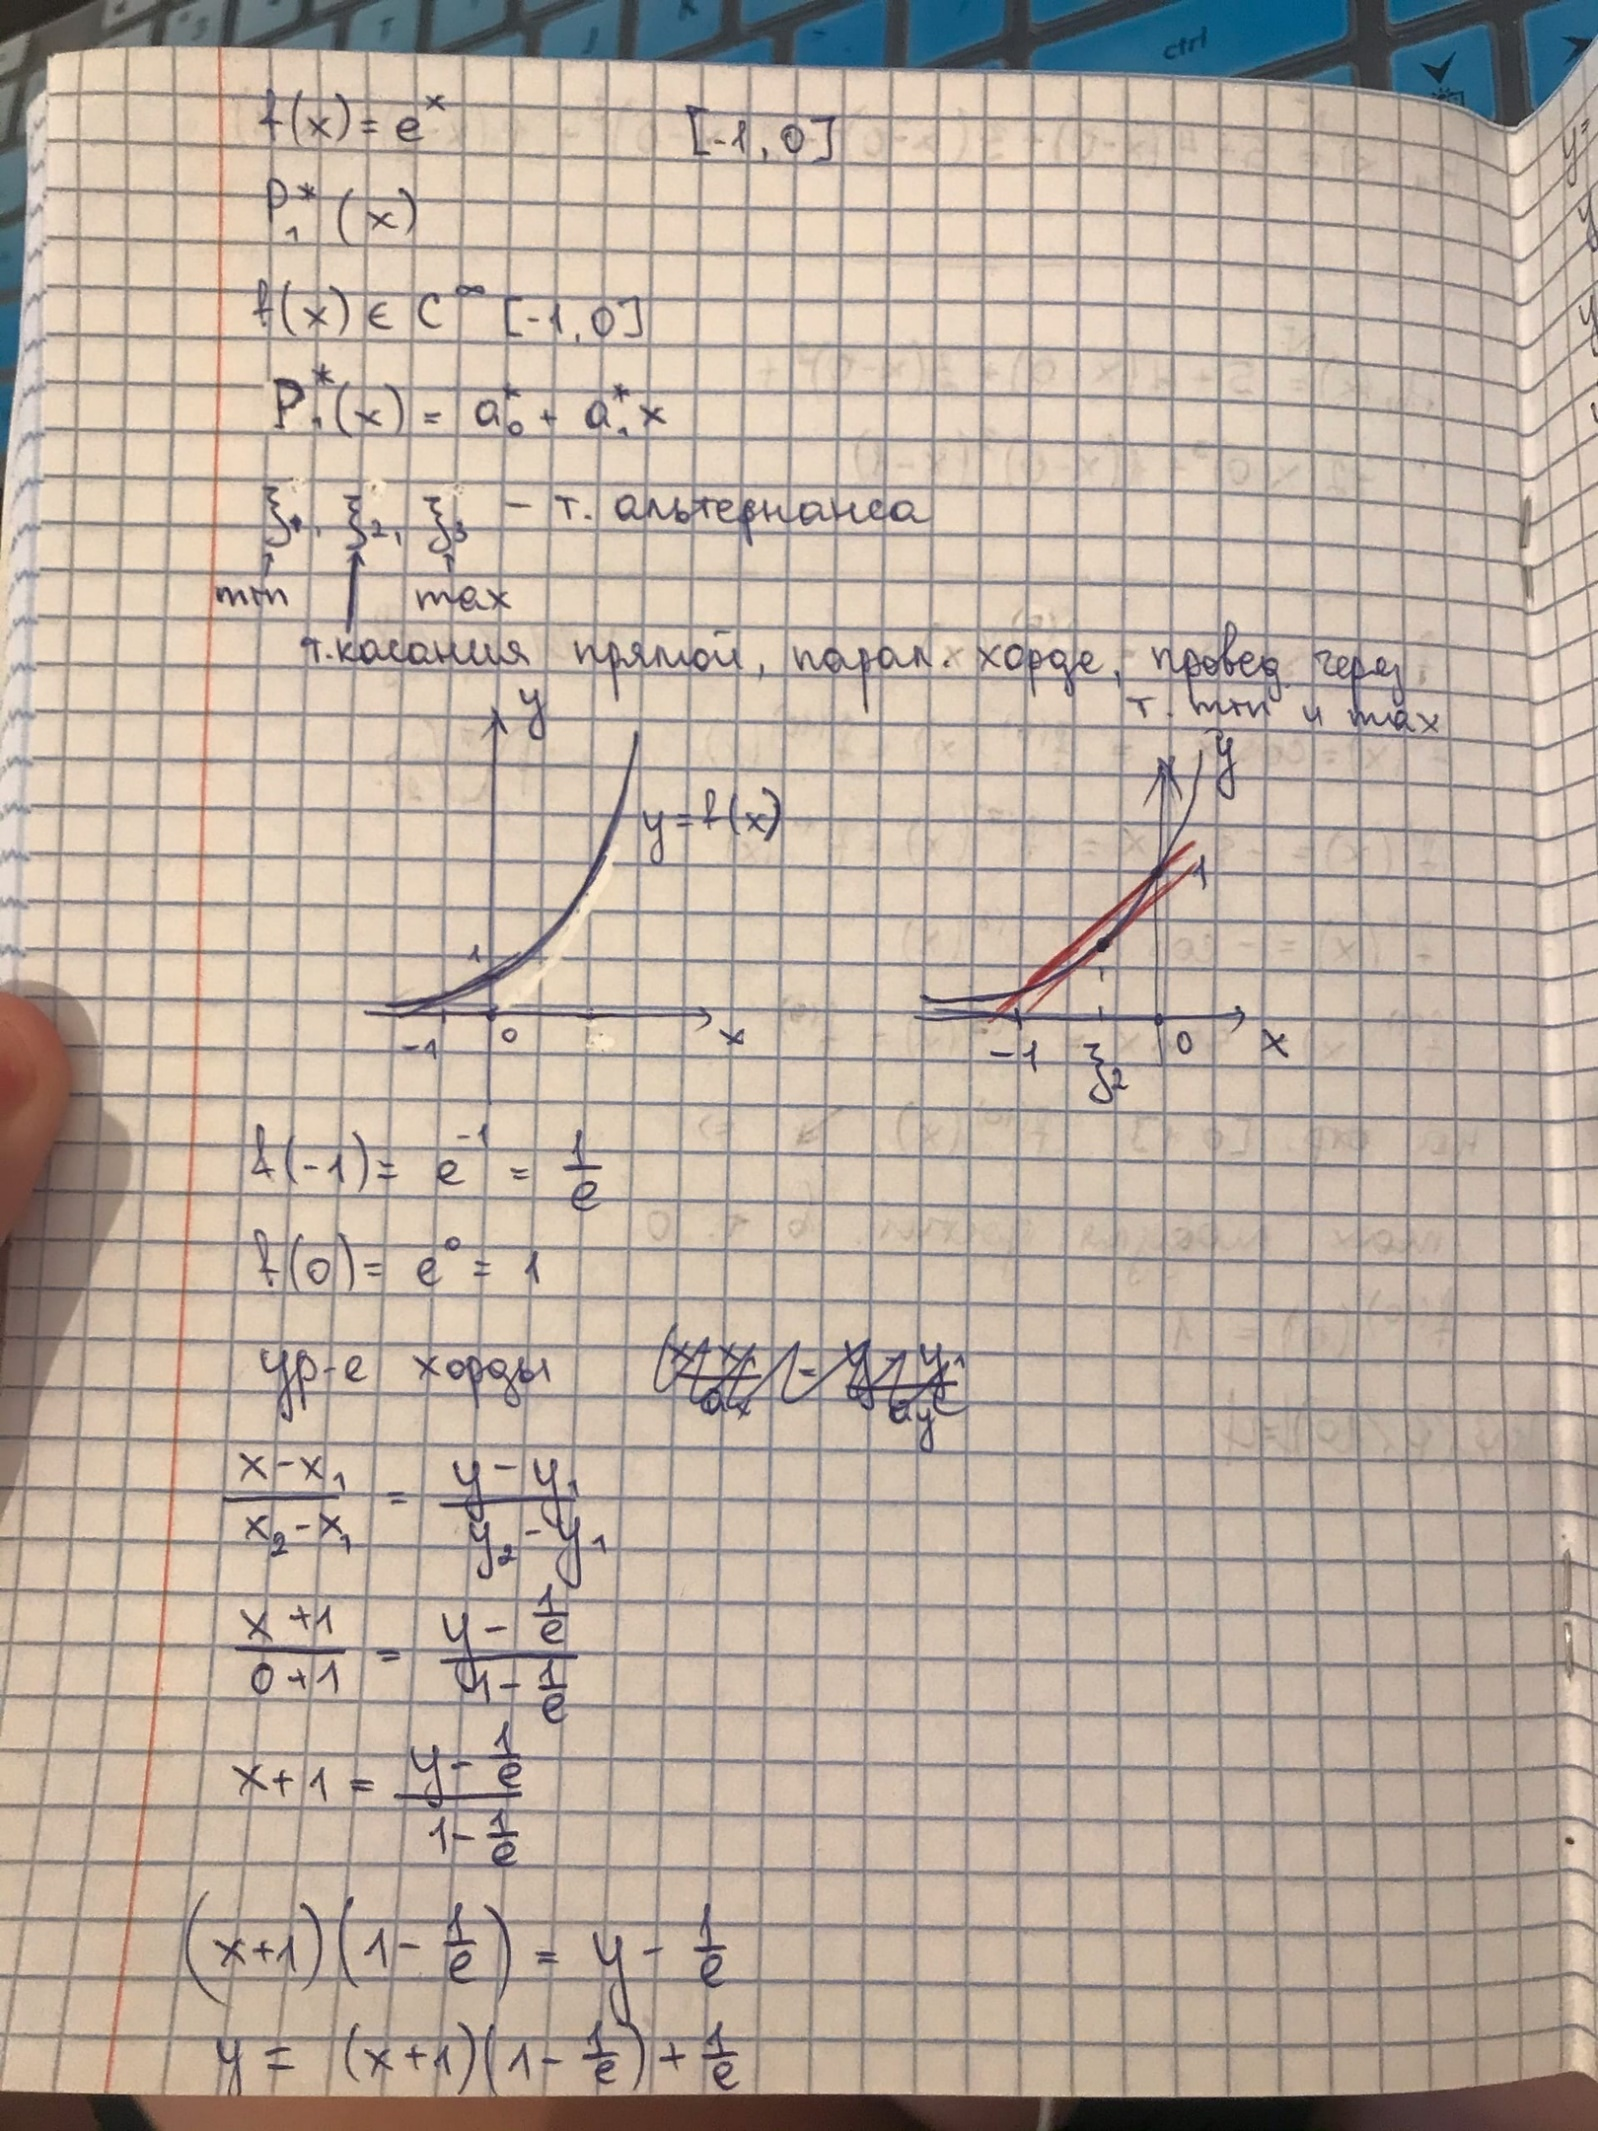 f(x) = e^x [-1, 0]
P₁*(x)
f(x) ∈ C^∞ [-1, 0]
P₁*(x) = a₀* + a₁* x
ξ₁, ξ₂, ξ₃ - т. альтернанса
min max
т. касания прямой, парал. хорде, провед. через
т. min и max
y y
y = f(x)
1 1
-1 0 x -1 ξ₂ 0 x
f(-1) = e^-1 = 1/e
f(0) = e^0 = 1
ур-е хорды
(x - x₁)/(x₂ - x₁) = (y - y₁)/(y₂ - y₁)
(x + 1)/(0 + 1) = (y - 1/e)/(1 - 1/e)
x + 1 = (y - 1/e)/(1 - 1/e)
(x+1)(1 - 1/e) = y - 1/e
y = (x+1)(1 - 1/e) + 1/e
ctrl